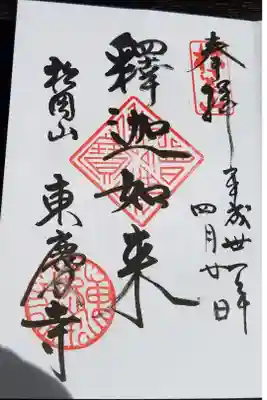 奉拝
平成廿一年
四月廿日
釋迦如来
松岡山
東慶寺